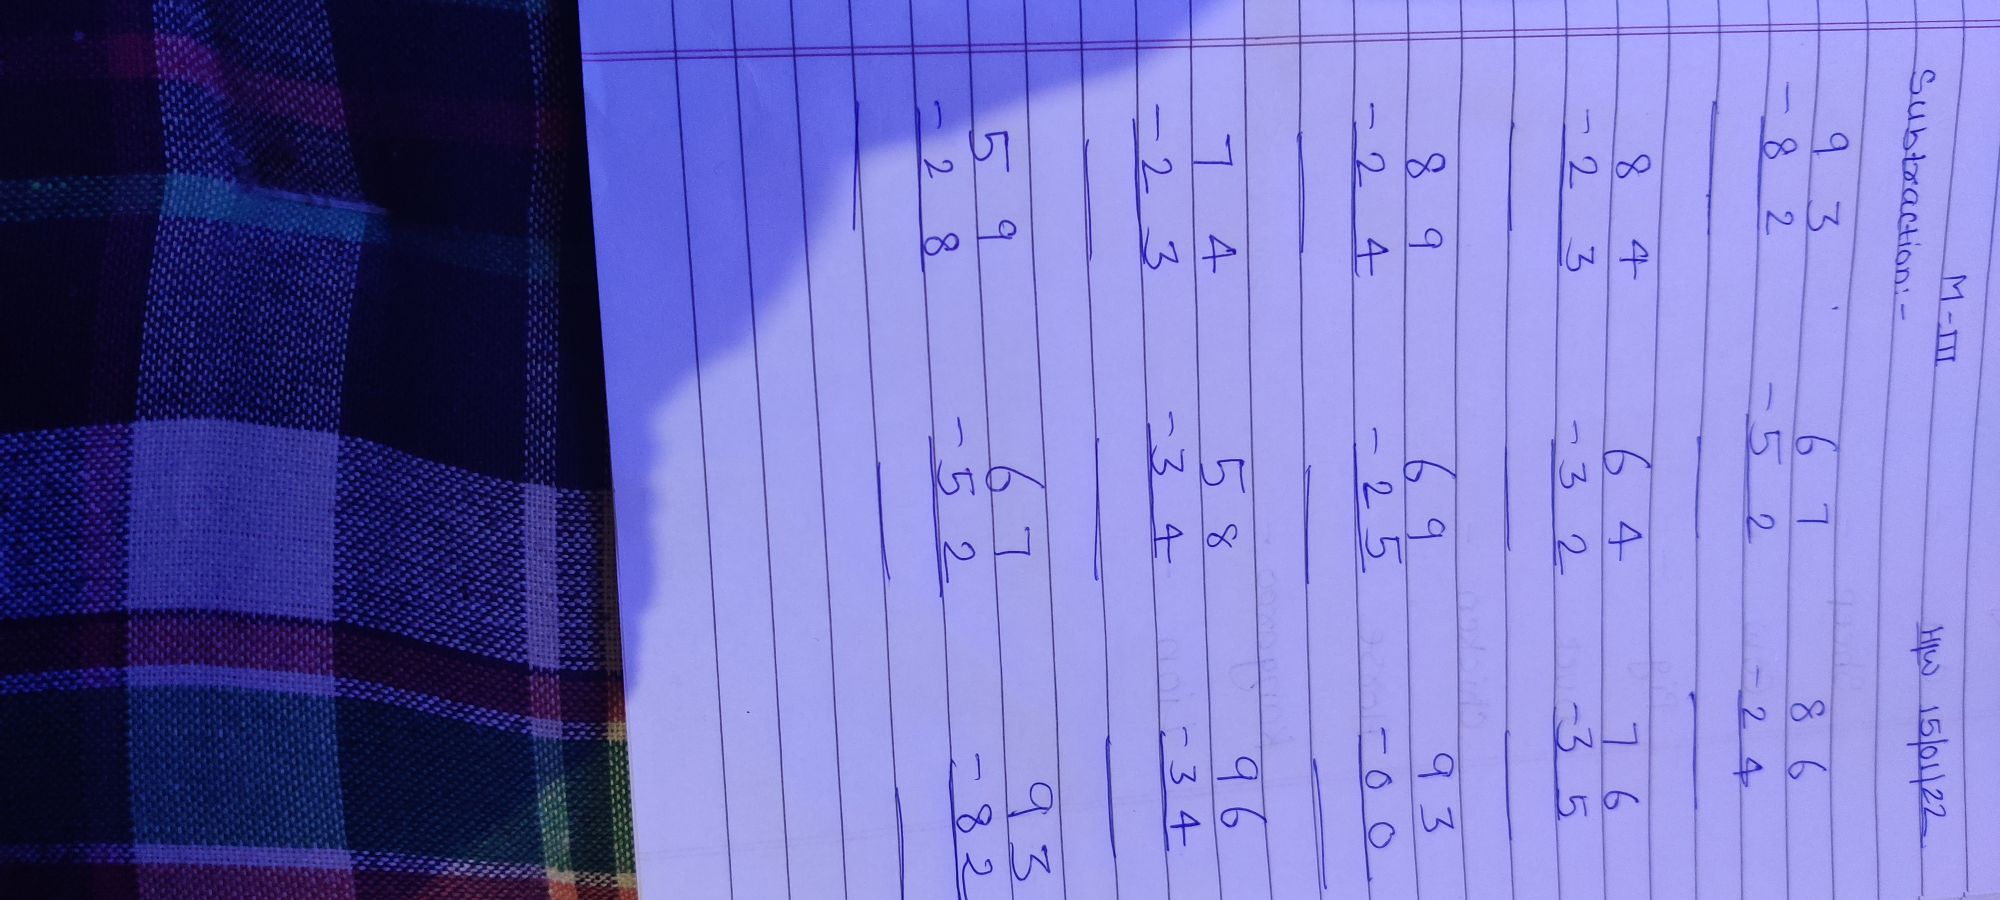 M-III H/W 15/01/22
Subtraction:-
93 67 86
-82 -52 -24
84 64 76
-23 -32 -35
89 69 93
-24 -25 -00
74 58 96
-23 -34 -34
59 67 93
-28 -52 -82